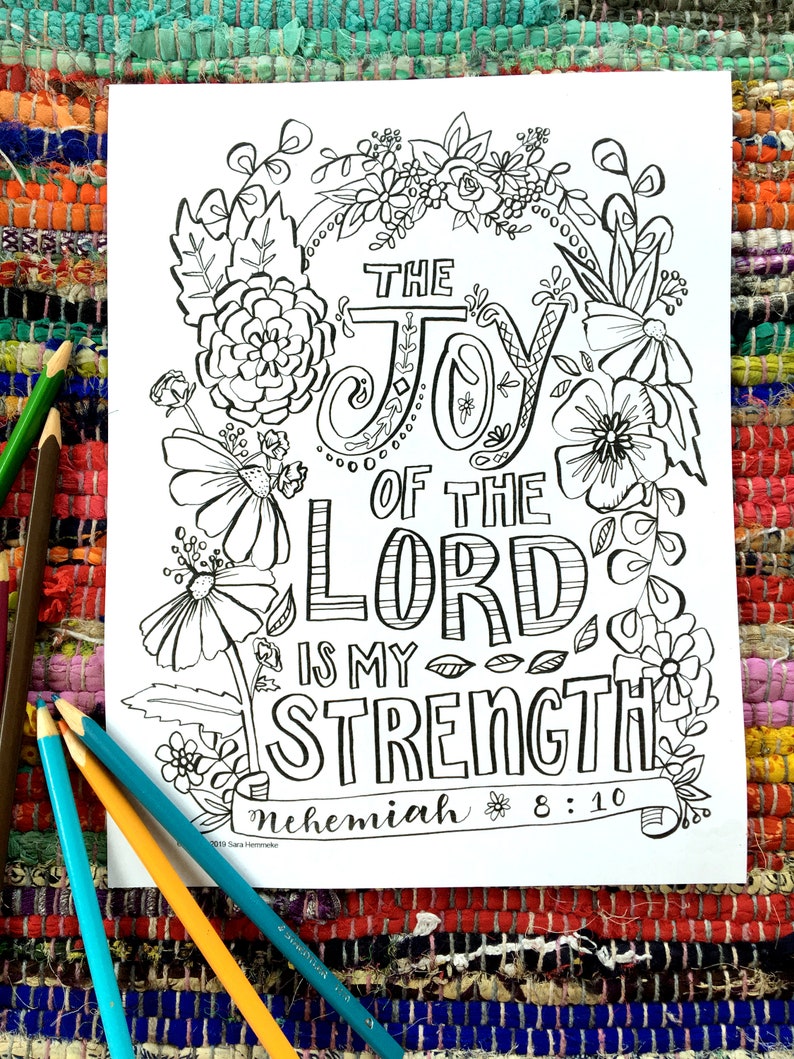 THE
JOY
OF THE
LORD
IS MY
STRENGTH
Nehemiah 8:10
2019 Sara Hemmeke